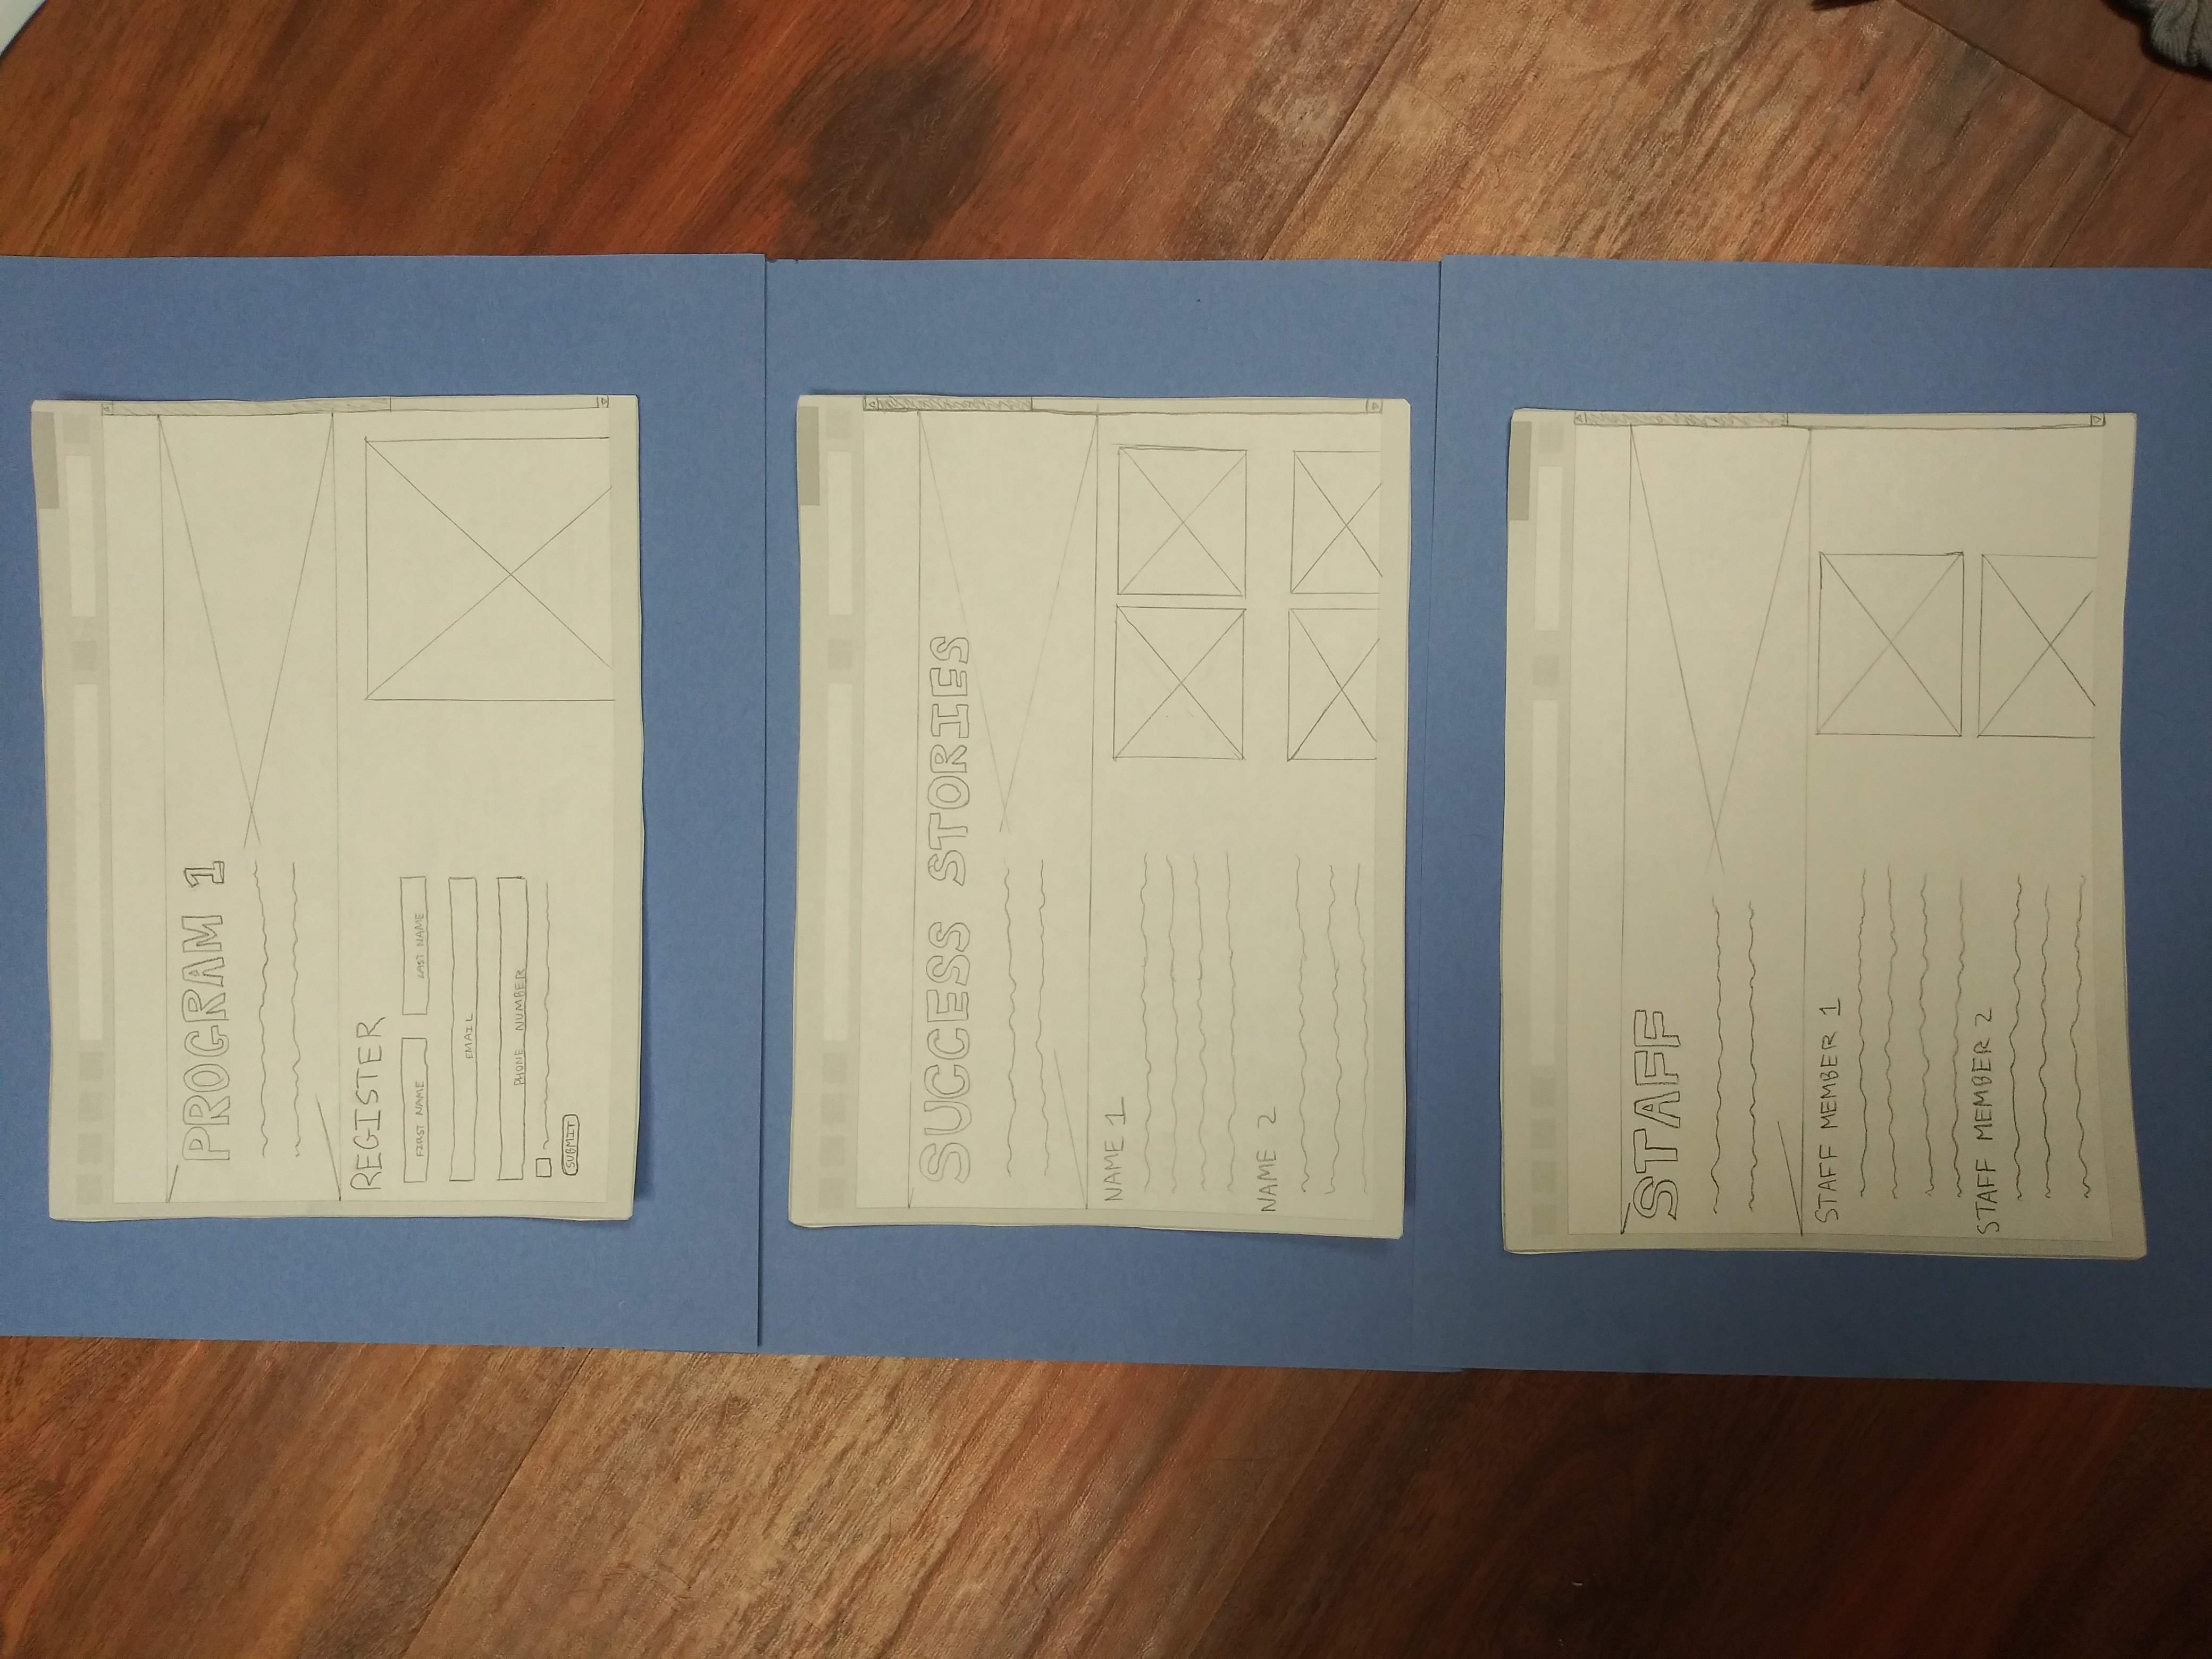 PROGRAM 1
REGISTER
FIRST NAME LAST NAME
EMAIL
PHONE NUMBER
SUBMIT
SUCCESS STORIES
NAME 1
NAME 2
STAFF
STAFF MEMBER 1
STAFF MEMBER 2